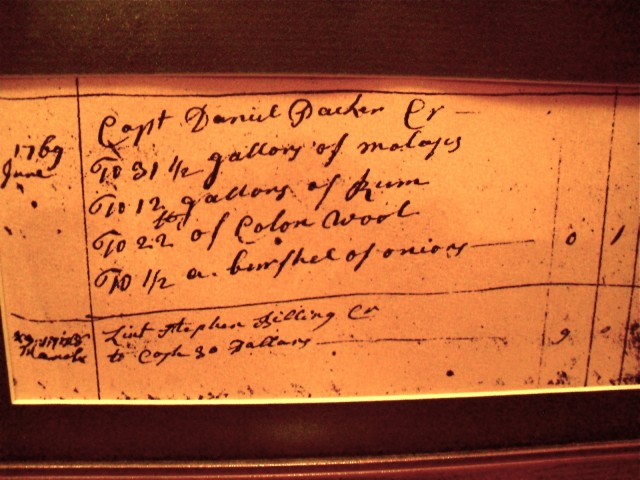 Capt Daniel Packer Cr
1769 To 31 1/2 gallons of molases
June To 12 gallons of Rum
To 22 lb of Coton Wool
To 1/2 a burshel of onions 0 1
Liut Stephen Billing Cr
March to Cash 30 Dallars 9 0